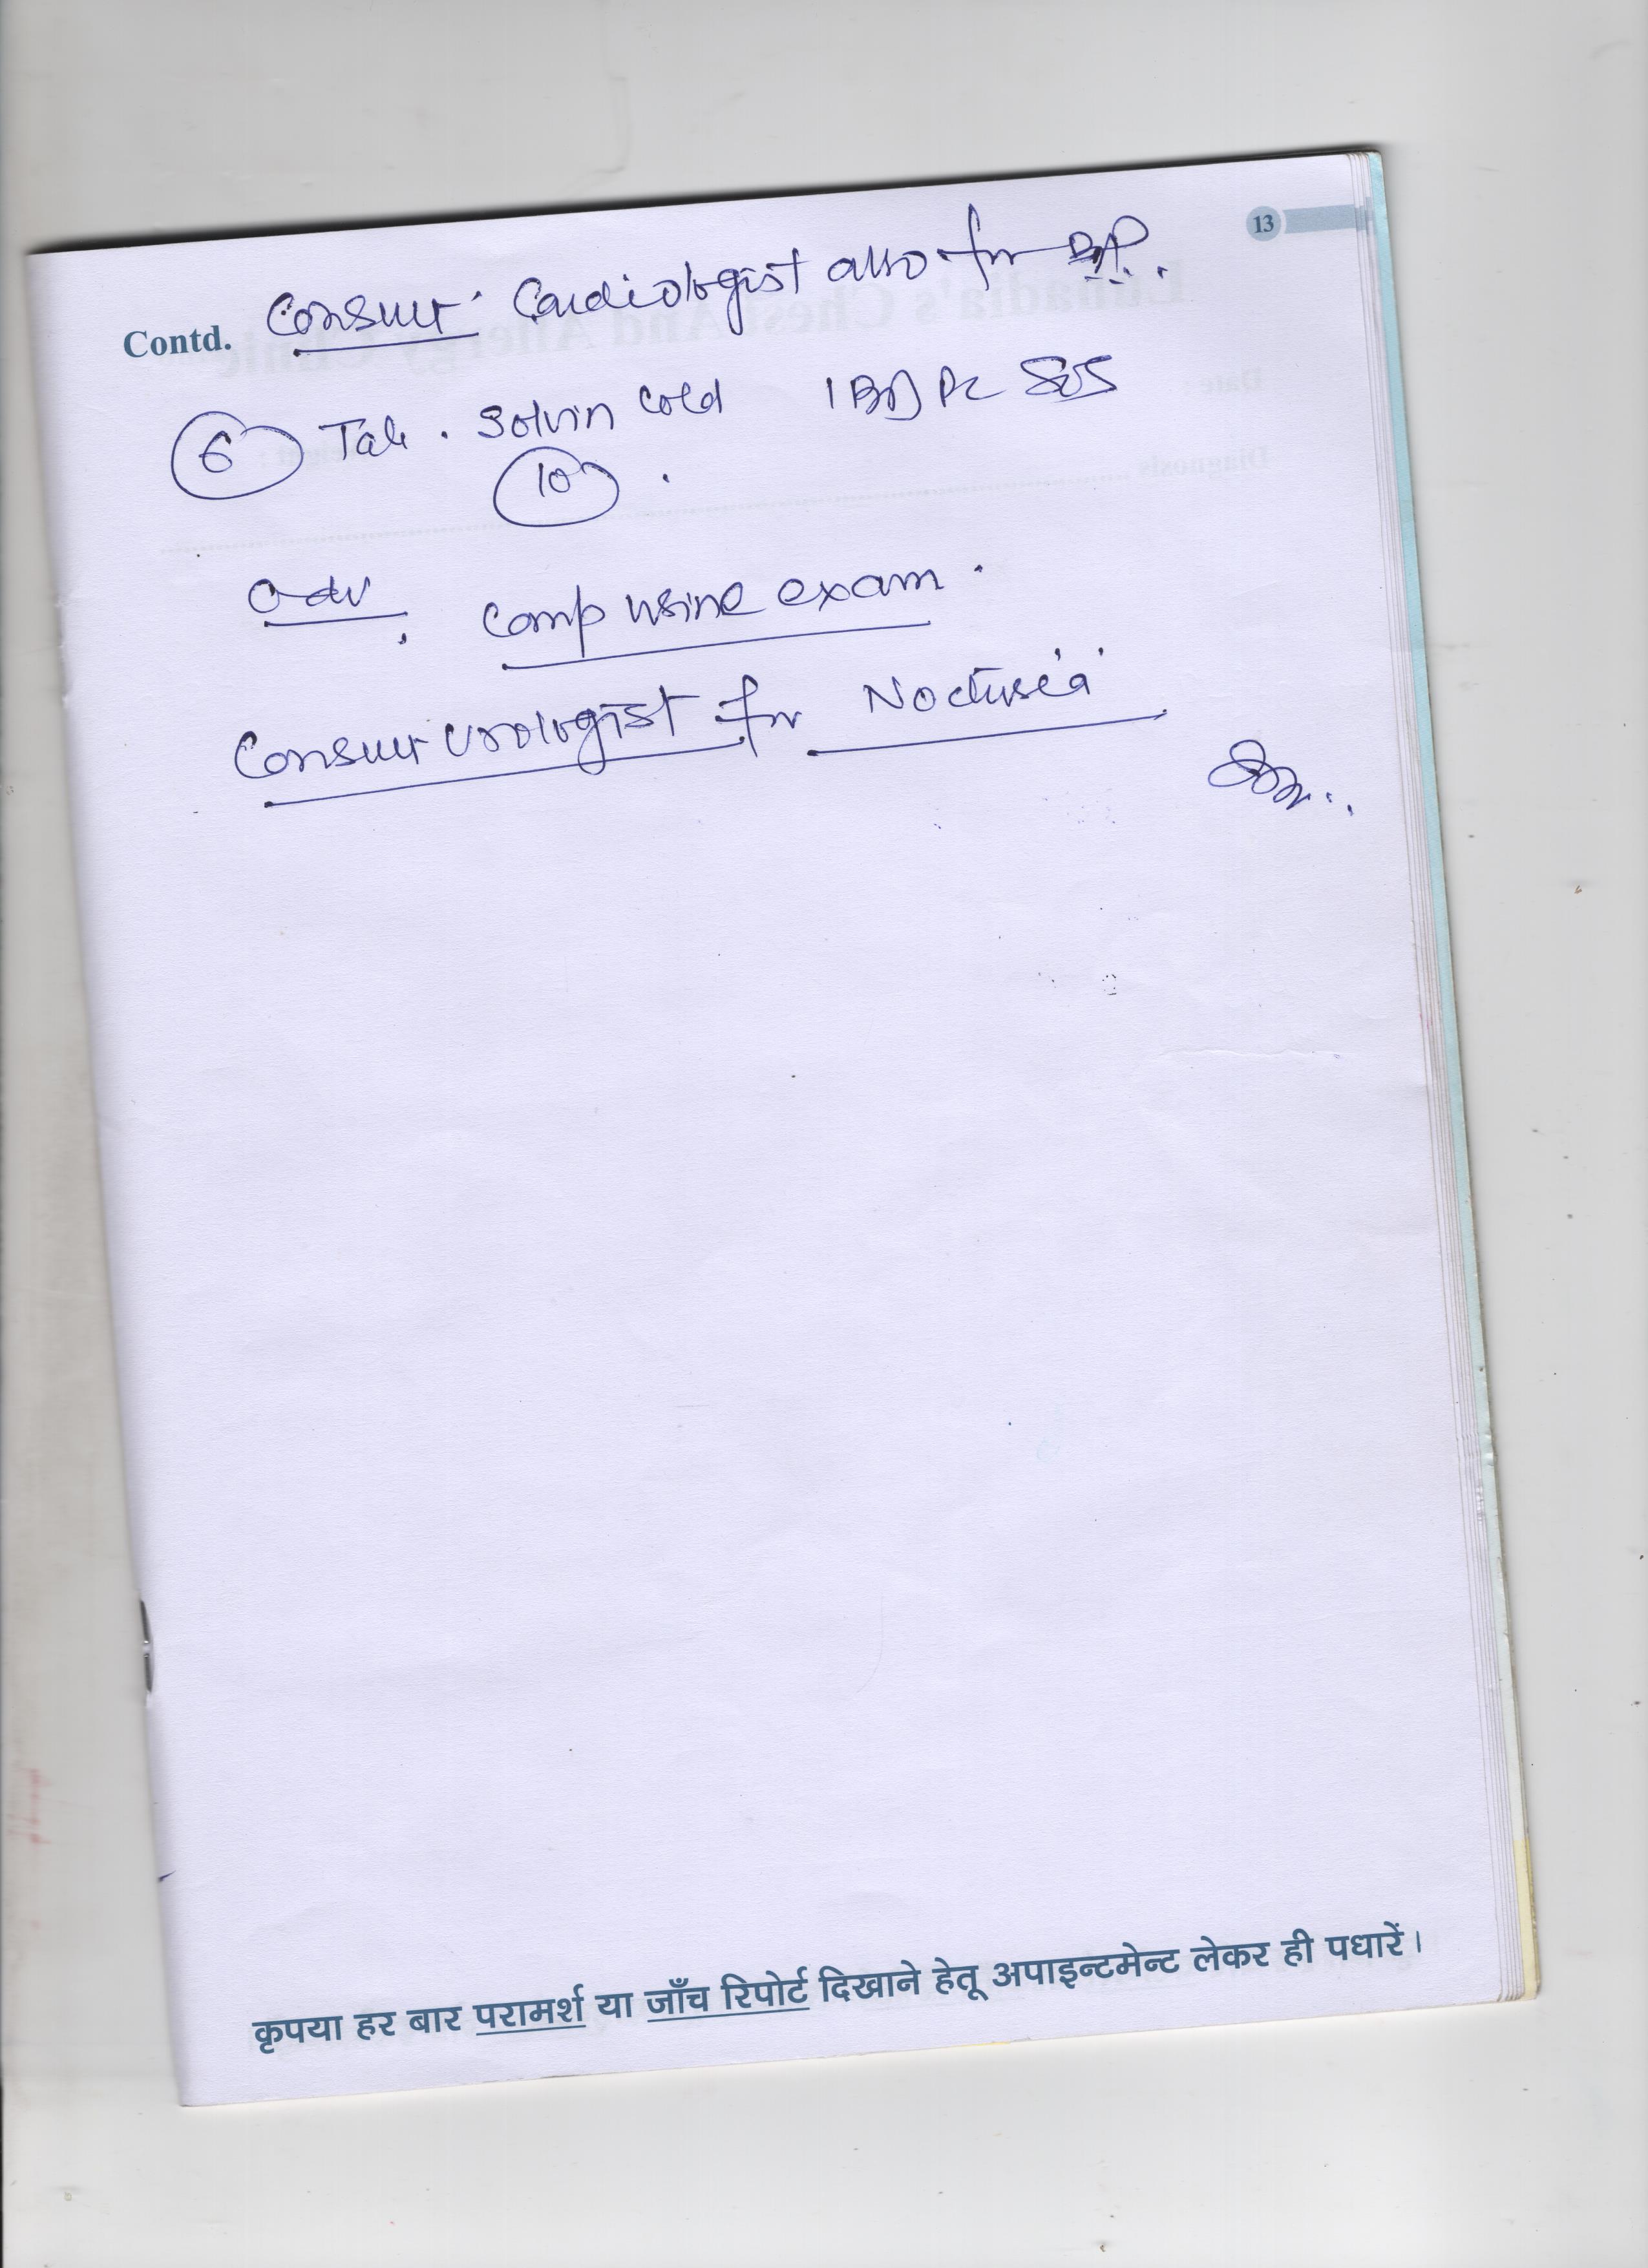 13
Consult Cardiologist also for B.P.
Contd.
6 Tab. Solvin Cold 1 BD PC SOS
10
Adv. Comp urine exam.
Consult Urologist for Nocturia
कृपया हर बार परामर्श या जाँच रिपोर्ट दिखाने हेतू अपाइन्टमेन्ट लेकर ही पधारें।